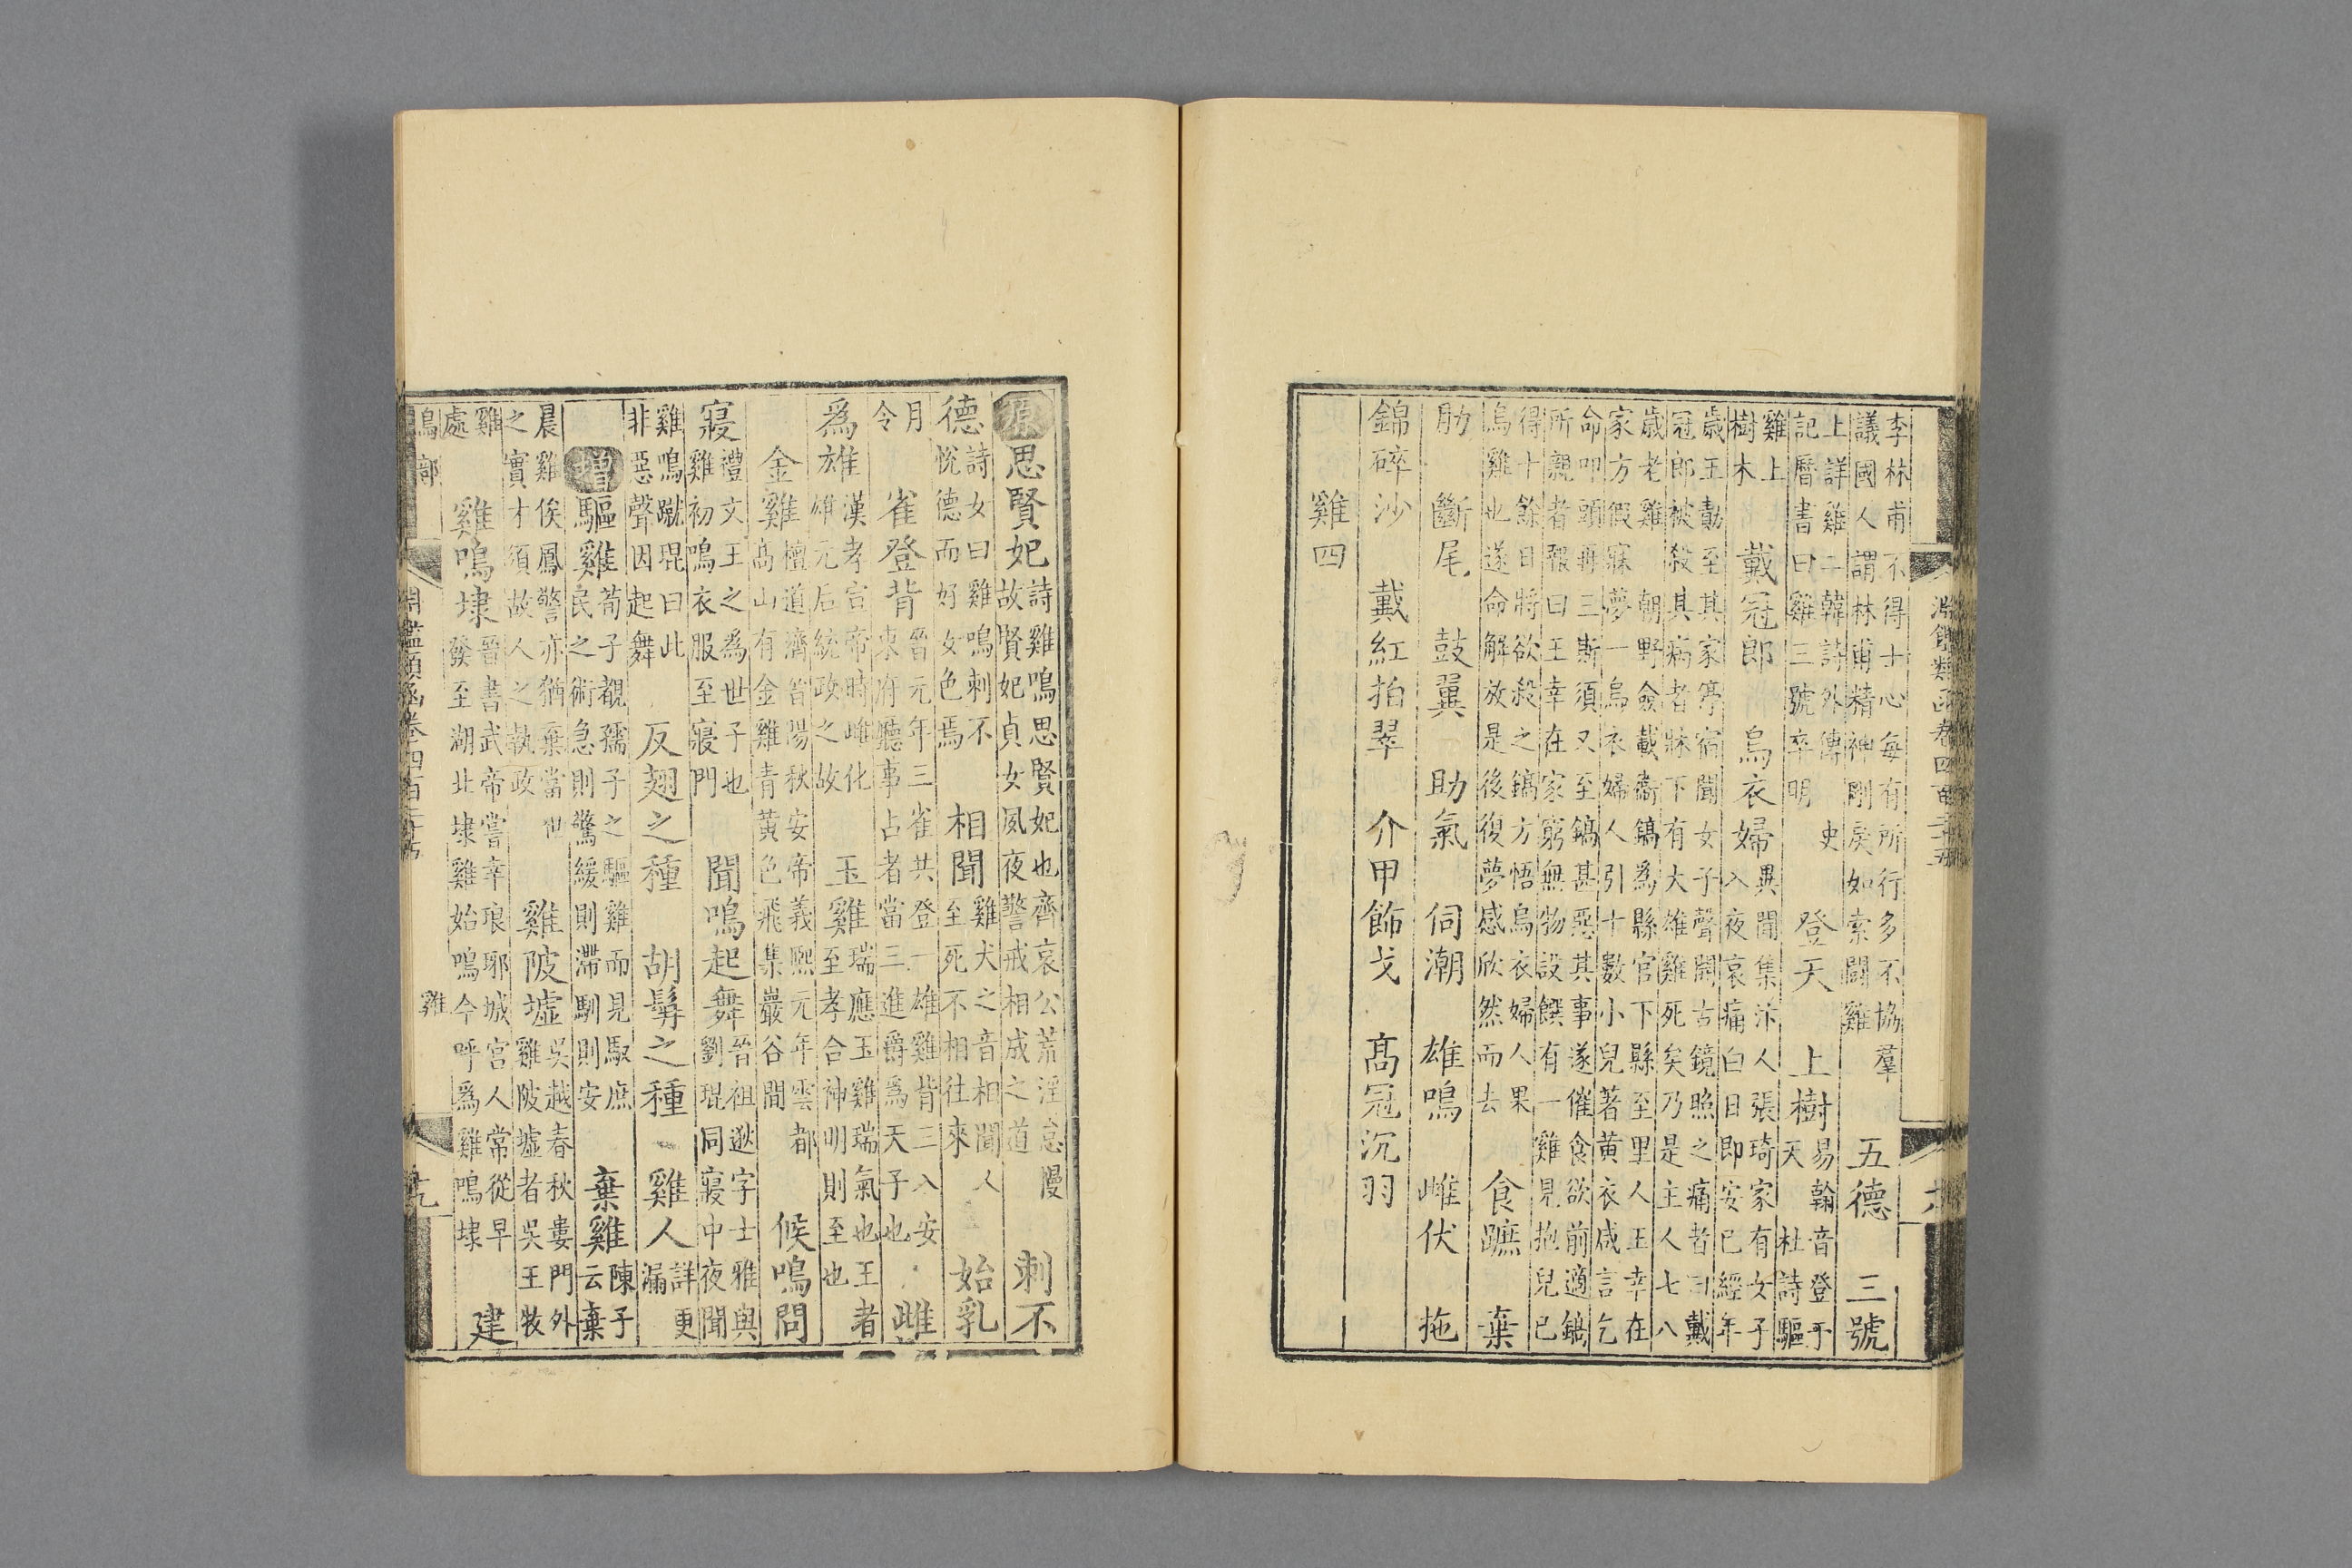 淵鑑類函卷四百二十五
李林甫不得士心每有所行多不協羣
議國人謂林甫精神剛戾如索鬭雞 五德 三號
上詳雞二韓詩外傳 史
記曆書曰雞三號卒明 登天 上樹 易翰音登于
天 杜詩驅
雞上
樹木 戴冠郎 烏衣婦 異聞集汴人張琦家有女子
入夜哀痛白日即安已經年
歲王勣至其家停宿聞女子聲開古鏡照之痛者曰戴
冠郎被殺其病者牀下有大雄雞死矣乃是主人七八
歲老雞 朝野僉載衛鎬為縣官下縣至里人王幸在
家方假寐夢一烏衣婦人引十數小兒著黄衣咸言乞
命叩頭再三斯須又至鎬甚惡其事遂催食欲前適鎬
所親者報曰王幸在家窮無物設饌有一雞見抱兒已
得十餘日將欲殺之鎬方悟烏衣婦人果
烏雞也遂命解放是後復夢感欣然而去 食蹠 棄
肋 斷尾 鼓翼 助氣 伺潮 雄鳴 雌伏 拖
錦碎沙 戴紅拍翠 介甲飾戈 髙冠沉羽
雞四
原思賢妃 詩雞鳴思賢妃也齊哀公荒淫怠慢
故賢妃貞女夙夜警戒相成之道 刺不
德 詩女曰雞鳴刺不
悅德而好女色焉 相聞 雞犬之音相聞人
至死不相往來 始乳
月
令 雀登背 晉元年三雀共登一雄雞背三入安
東府廳事占者當三進爵為天子也 雌
為雄 漢孝宣帝時雌化
雄元后統政之故 玉雞 瑞應玉雞瑞氣也王者
至孝合神明則至也
金雞 檀道濟晉陽秋安帝義熙元年雲都
髙山有金雞青黄色飛集巖谷間 候鳴問
寢 禮文王之為世子也
雞初鳴衣服至寢門 聞鳴起舞 晉祖逖字士雅與
劉琨同寢中夜聞
雞鳴蹴琨曰此
非惡聲因起舞 反翅之種 胡髯之種 雞人 詳更
漏
增驅雞 荀子觀孺子之驅雞而見馭庶
民之術急則驚緩則滯馴則安 棄雞 陳子
云棄
晨雞俟鳳警亦猶棄當世
之實才須故人之執政 雞陂墟 吳越春秋婁門外
雞陂墟者吳王牧
雞
處 雞鳴埭 晉書武帝嘗幸琅邪城宫人常從早
發至湖北埭雞始鳴今呼為雞鳴埭 建
鳥部 淵鑑類函卷四百二十五 雞 十九